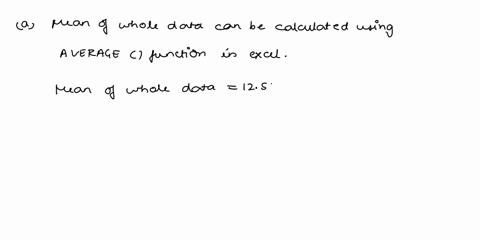 (a) Mean of whole data can be calculated using
AVERAGE () function in excel.
Mean of whole data = 12.5